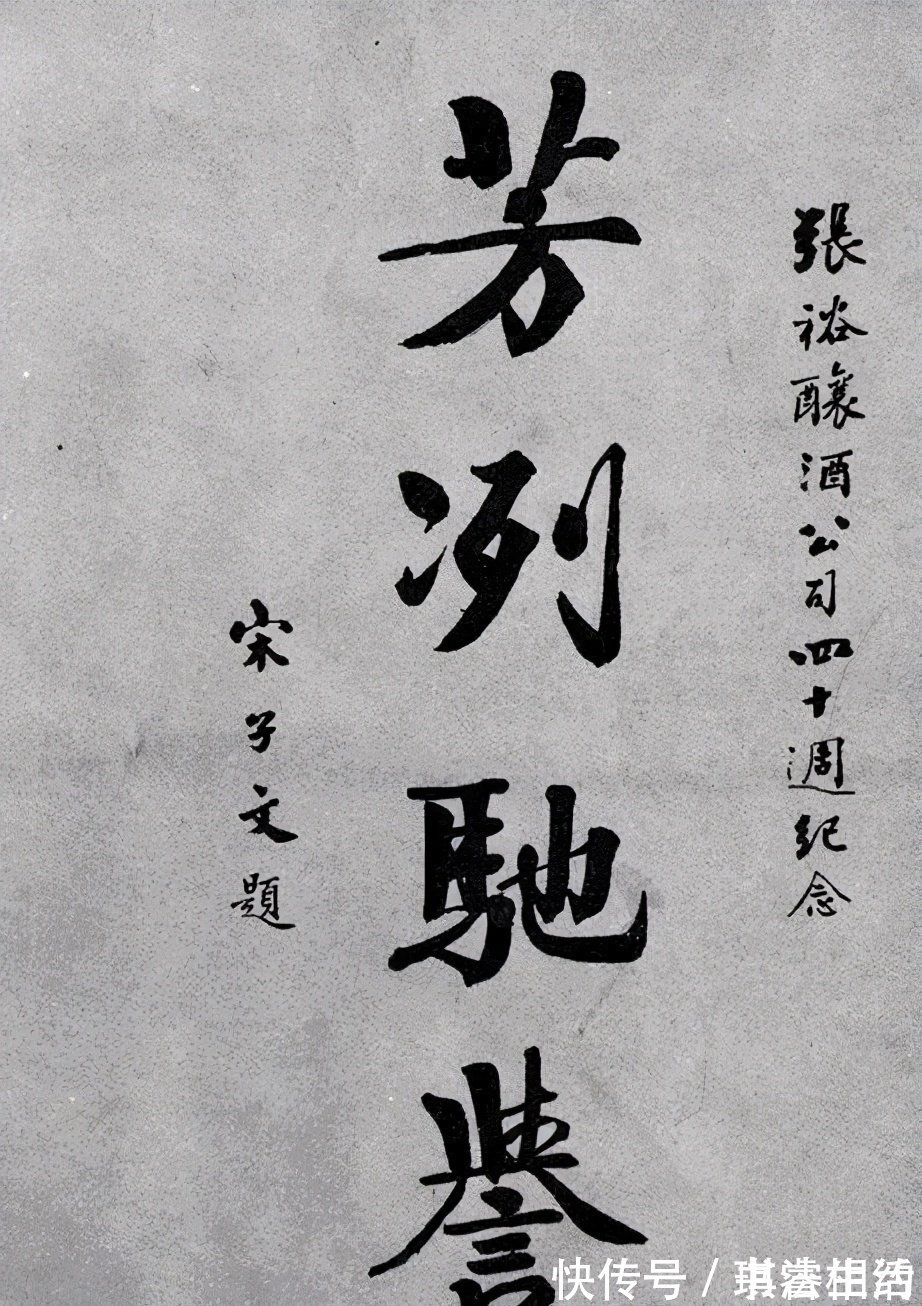 張裕釀酒公司四十週紀念
芳冽馳譽
宋子文題
快传号/琪